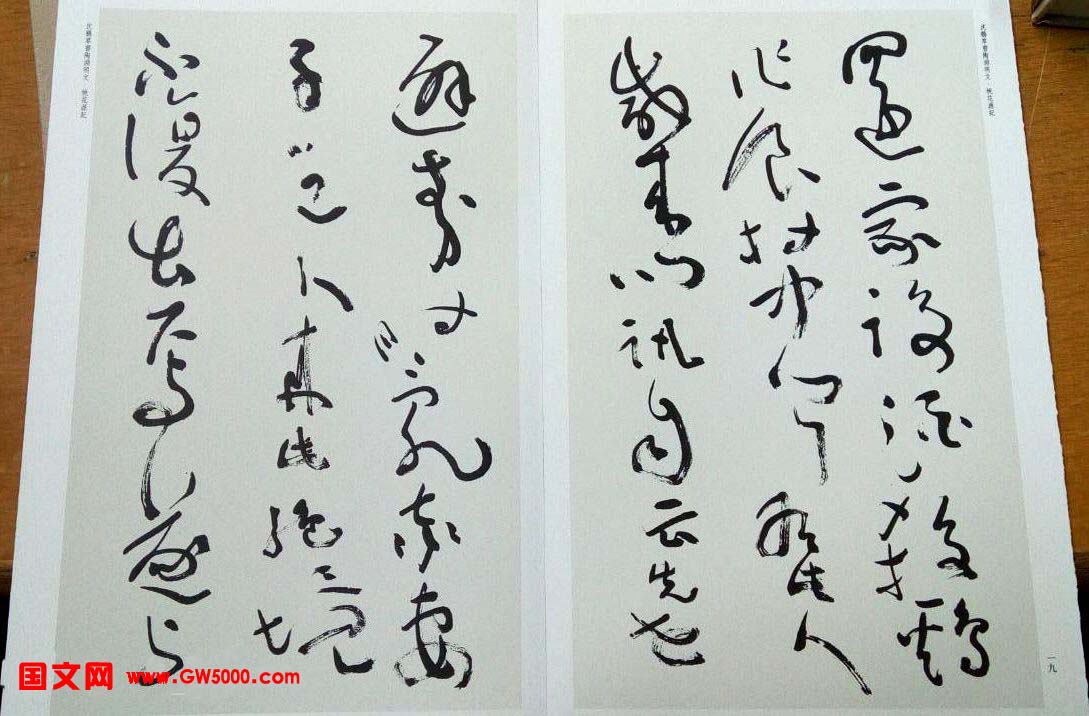 沈鵬草書陶淵明文·桃花源記
還家設酒殺鷄
作食村中聞有此人
咸来問訊自云先世
一九
避秦時亂率妻
子邑人來此絶境
不復出焉遂與
沈鵬草書陶淵明文·桃花源記
国文网 www.GW5000.com